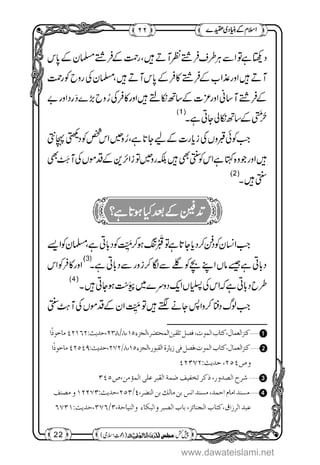 اسلام کے بنیادی عقیدے ۲۲
دیکھتا ہے اسے ہر طرف فرشتے نظر آتے ہیں، رحمت کے فرشتے مسلمان کے پاس
آتے ہیں اور عذاب کے فرشتے کافر کے پاس آتے ہیں، مسلمان کی روح کو رحمت
کے فرشتے آسانی اور عزت کے ساتھ نکالتے ہیں اور کافر کی روح بڑے درد اور بے
حرمتی کے ساتھ نکالی جاتی ہے۔ (1)
جب کوئی قبروں کی زیارت کے لیے جاتا ہے، روحیں اس شخص کو دیکھتی پہچانتی
ہیں اور جو وہ کہتا ہے اس کو سنتی بھی ہیں بلکہ روحیں تو زائرین کے قدموں کی آہٹ بھی
سنتی ہیں۔ (2)
تدفین کے بعد کیا ہوتا ہے؟
جب انسان کو دفن کر دیا جاتا ہے تو قبر تنگ ہو کر میت کو دباتی ہے، مسلمان کو ایسے
دباتی ہے جیسے ماں اپنے بچے کو گلے سے لگا کر زور سے دباتی ہے (3) اور کافر کو اس
طرح دباتی ہے کہ اس کی پسلیاں ایک دوسرے میں پیوست ہو جاتی ہیں۔ (4)
جب لوگ دفنا کر واپس جانے لگتے ہیں تو میت ان کے قدموں کی آہٹ سنتی
1 کنزالعمال، کتاب الموت، فصل تلقین المحتضر، الجزء۱۵، ۸/۲۳۸، حدیث: ۴۲۱۶۲ ماخوذًا
2 کنزالعمال، کتاب الموت، فصل فی زیارة القبور، الجزء۱۵، ۸/۲۷۲، حدیث: ۴۲۵۴۹ ماخوذًا
وص۲۵۴، حدیث: ۴۲۳۷۲
3 شرح الصدور، ذکر تخفیف ضمة القبر علی المؤمن، ص۳۴۵
4 مسند امام احمد، مسند انس بن مالك بن النضر، ۴/۲۵۳، حدیث: ۱۲۲۷۳ و مصنف
عبد الرزاق، کتاب الجنائز، باب الصبر والبکاء والنیاحة، ۳/۳۷۶، حدیث: ۶۷۳۱
22 پیش کش (دعوت اسلامی)
www.dawateislami.net